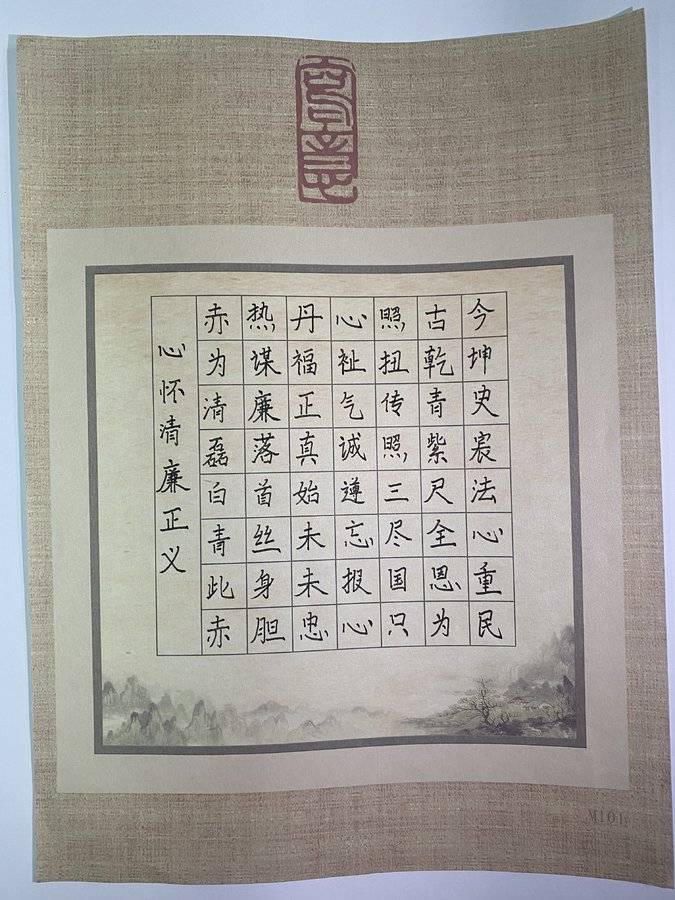 心怀清廉正义
赤热丹心照古今
为谋福祉扭乾坤
清廉正气传青史
磊落真诚照紫宸
白首始遵三尺法
青丝未忘尽全心
此身未报国恩重
赤胆忠心只为民